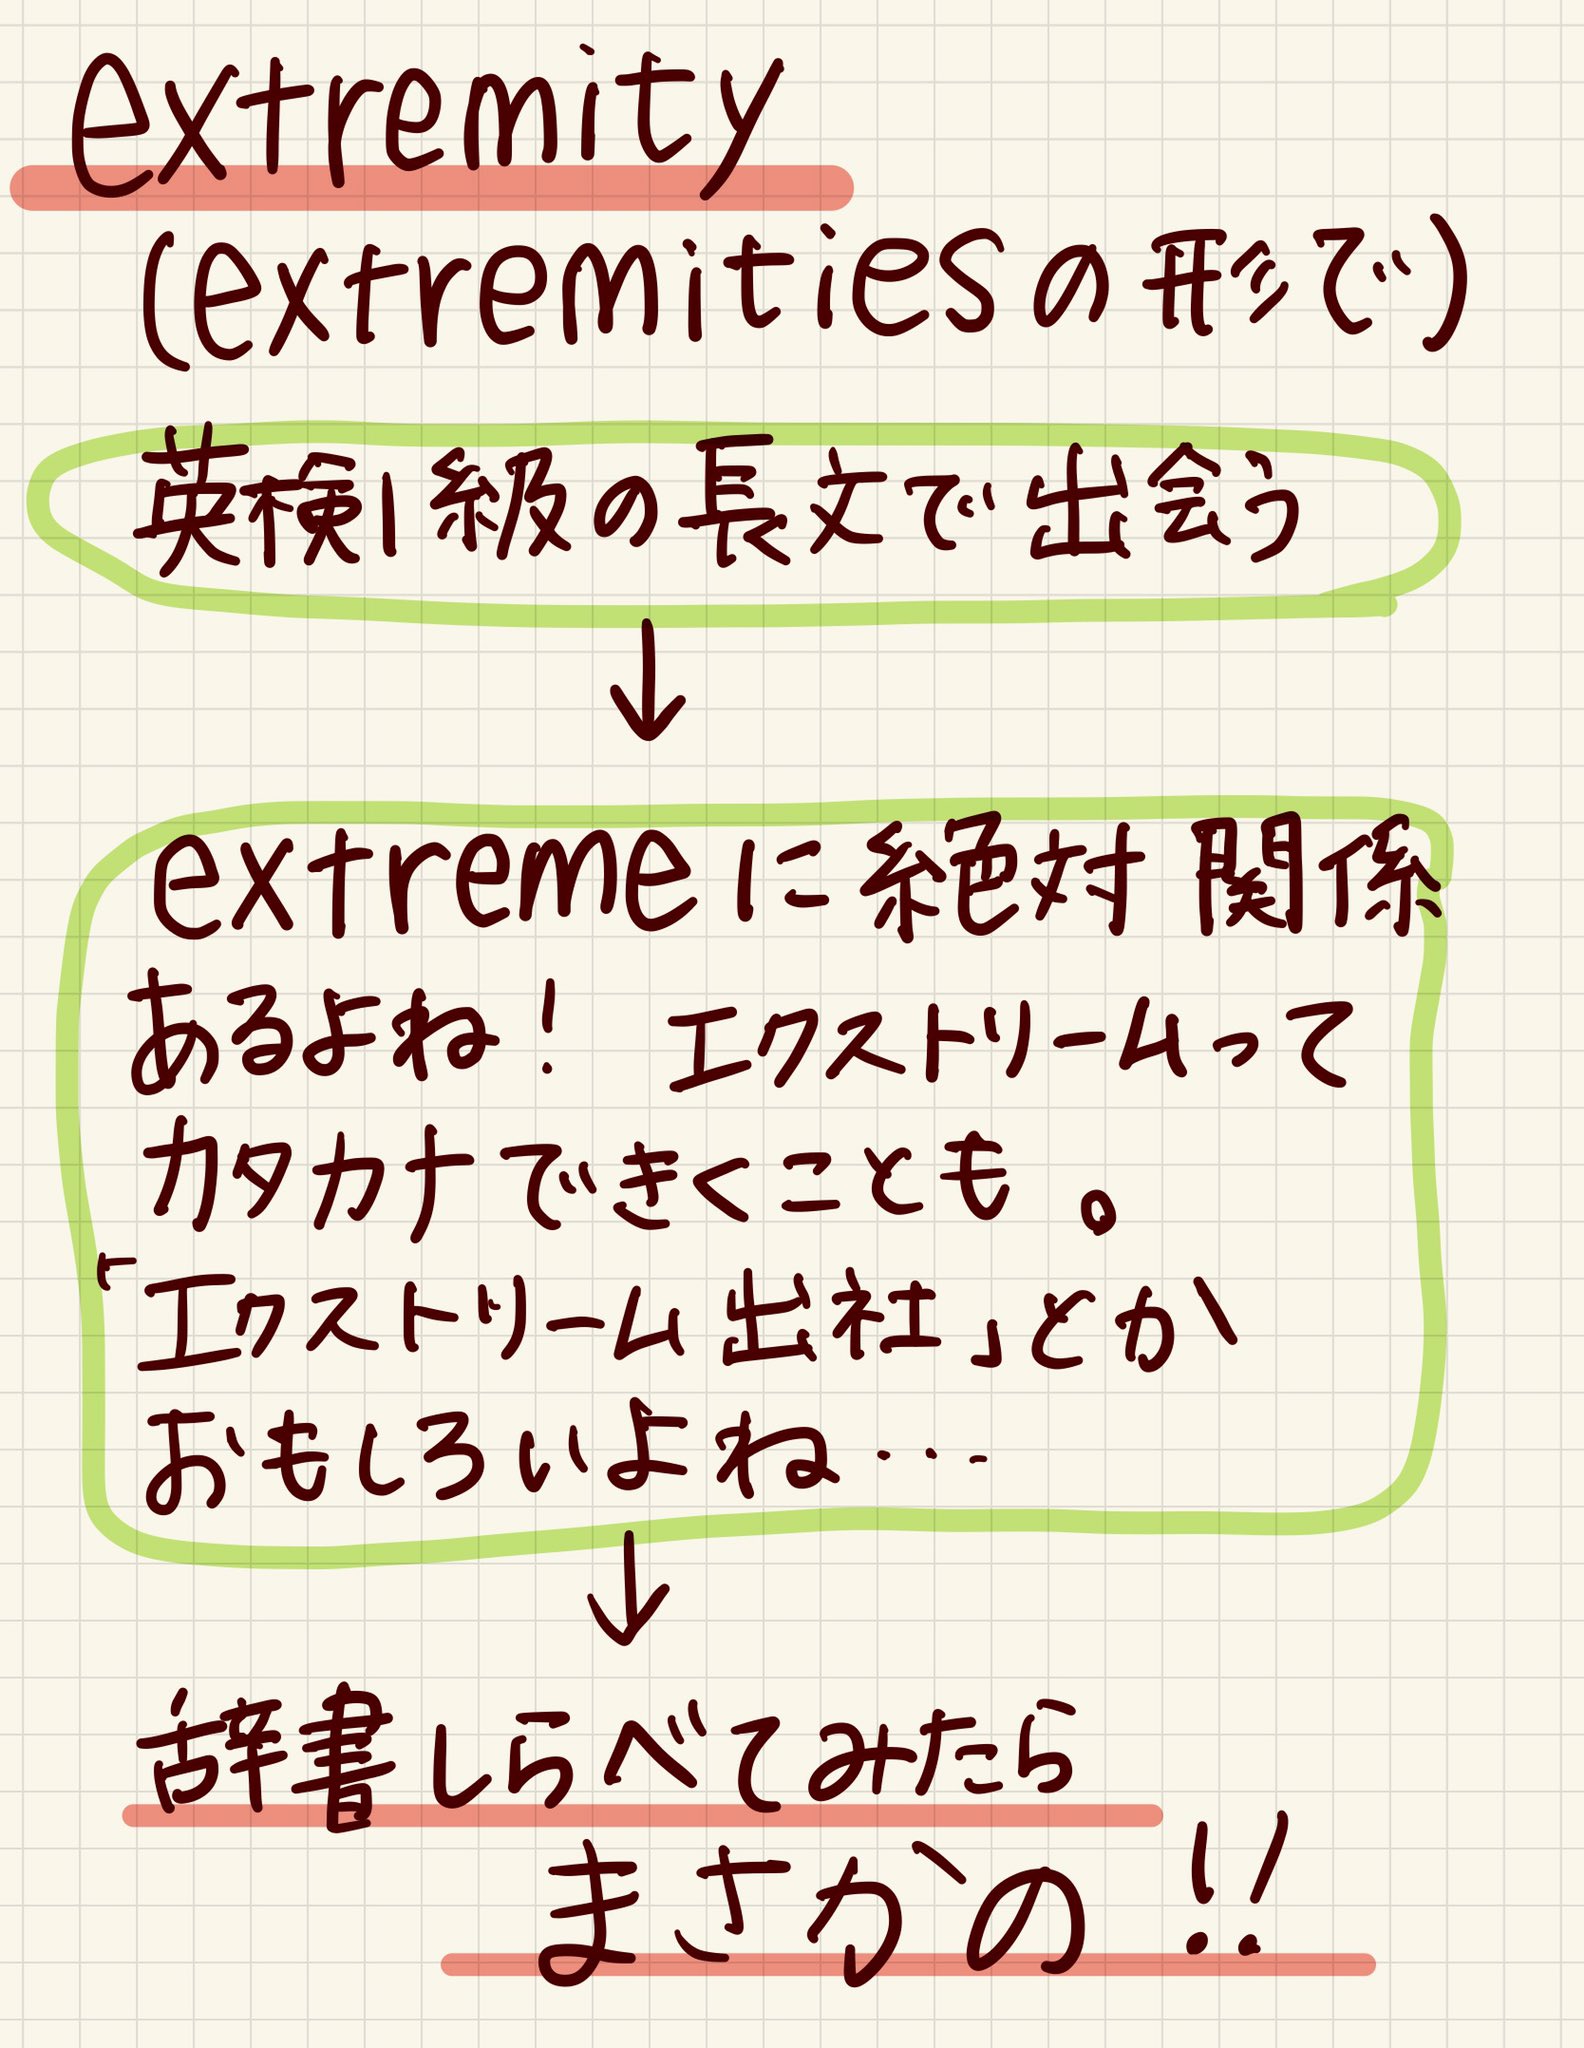 extremity
(extremitiesの形で)
英検1級の長文で出会う
↓
extremeに絶対関係
あるよね! エクストリームって
カタカナできくことも。
「エクストリーム出社」とか
おもしろいよね…
↓
辞書しらべてみたら
まさかの!!